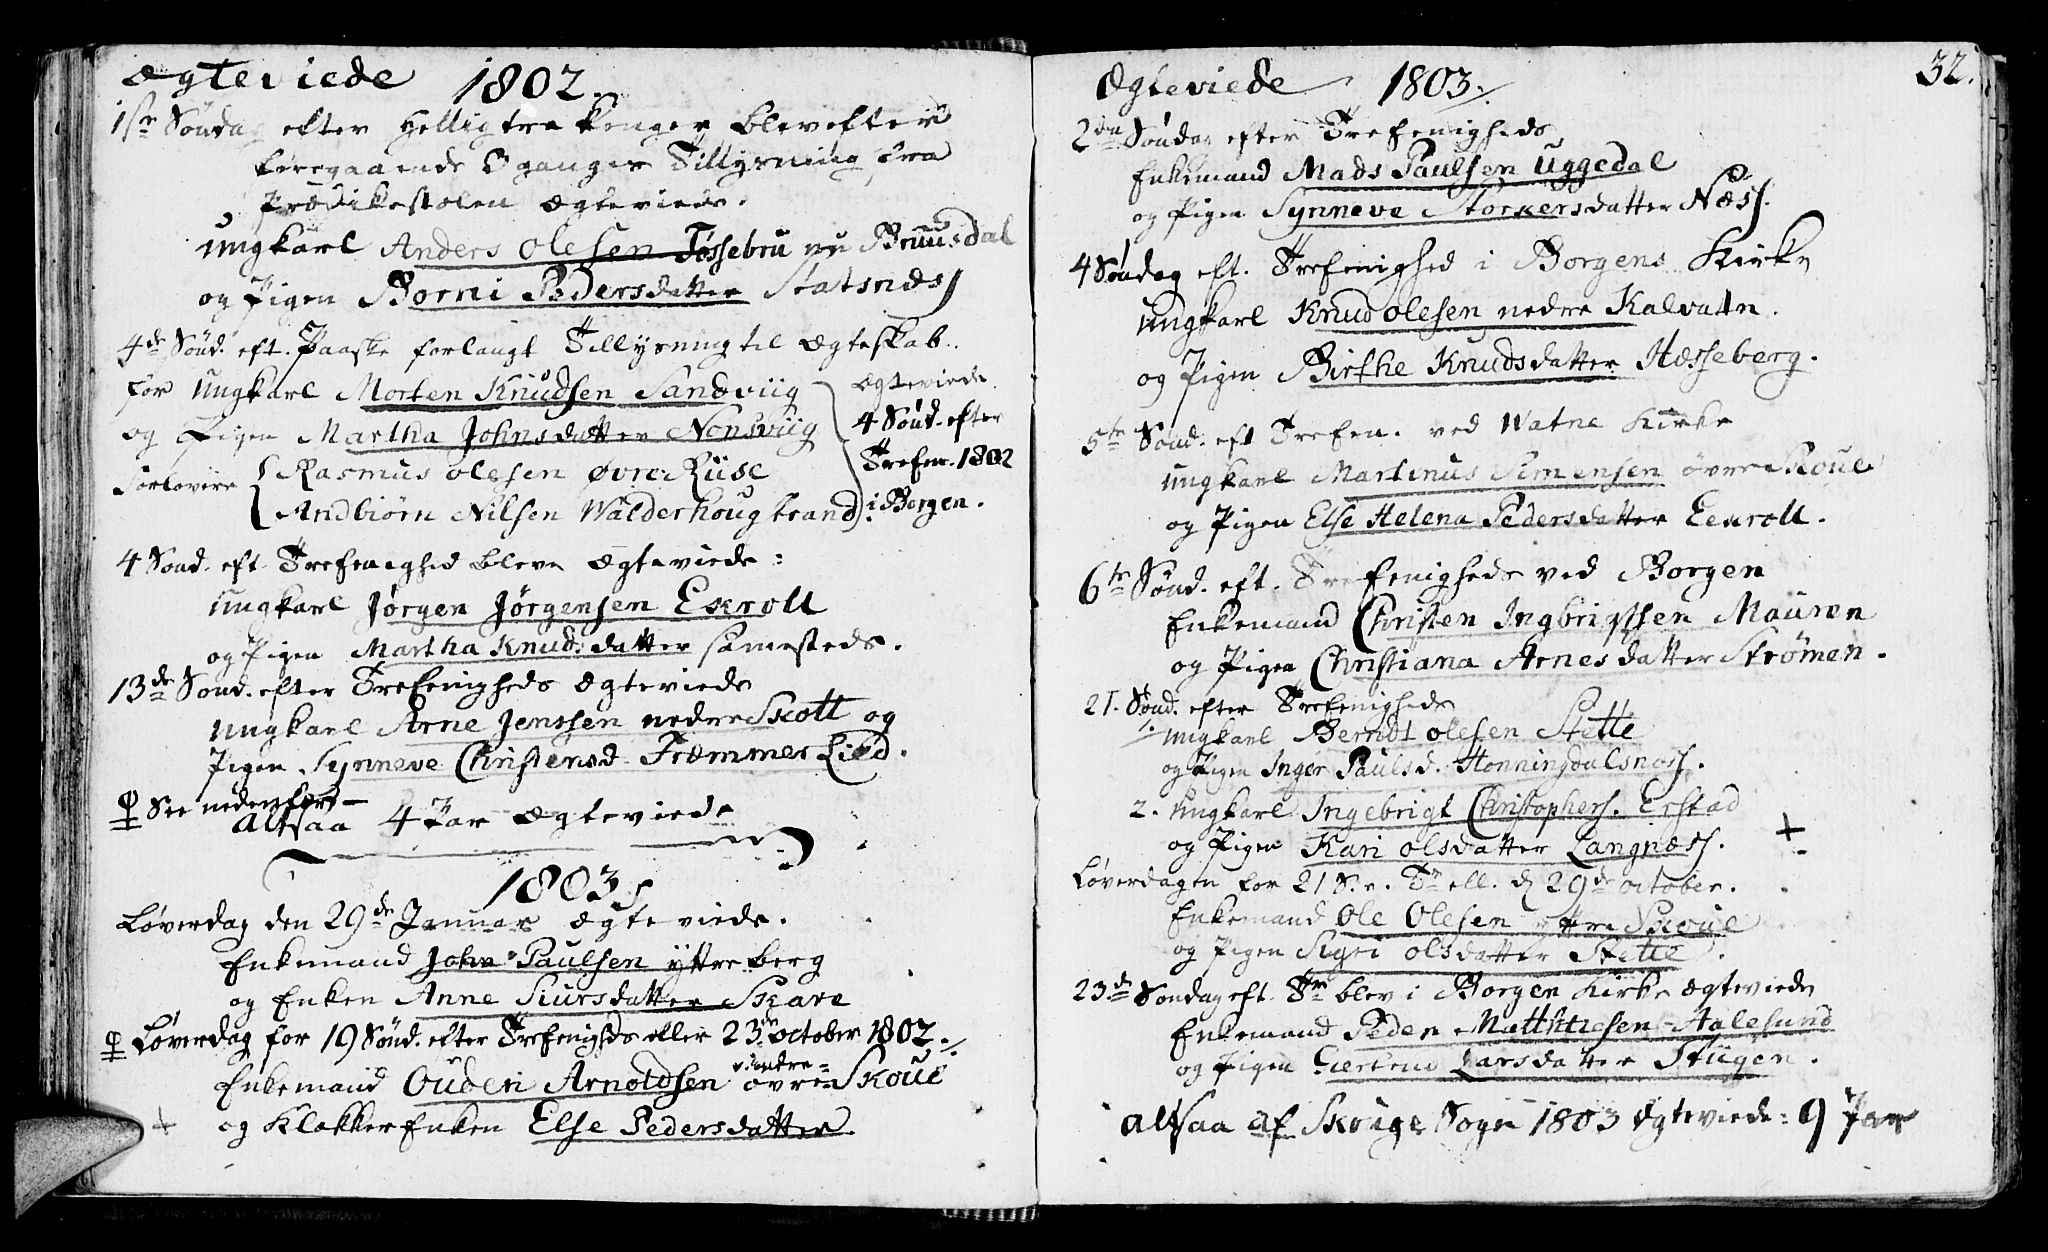 Ægteviede 1802.
1ste Søndag efter Hellig tre Konger blev efter
foregaaende 3 ganger Tillysning fra
Prædikestolen Ægteviede.
Ungkarl Anders Olesen Tøssebru nu Bruusdal
og Pigen Borni Pedersdatter Statsnæss
4de Sønd. eft. Paaske forlangt Tillysning til Ægteskab.
for Ungkarl Morten Knudsen Sandviig
og Pigen Martha Johnsdatter Nonsviig
Forlovere Rasmus Olesen Øvre Riise
Andbiørn Nilsen Walderhougstrand
Ægteviede
4 Sønd. efter
Trefen. 1802
i Borgen.
4 Sønd. eft. Trefenighed bleve Ægteviede:
Ungkarl Jørgen Jørgensen Exroll
og Pigen Martha Knudsdatter sammesteds.
13de Sønd. efter Trefenigheds Ægteviede
Ungkarl Arne Jenssen nedre Skott og
Pigen Synneve Christensd. Fræmmerlied.
See nedenfore—
Altsaa 4 Par Ægteviede
1803
Løverdag den 29de Januar Ægteviede.
Enkemand John Paulsen yttre berg
og Enken Anne Siursdatter Skare
Løverdag for 19 Sønd. efter Trefenigheds eller 23de October 1802.
Enkemand Ouden Arnoldsen øvre Skoue
og Klokker Enken Else Pedersdatter
Ægteviede 1803.
32.
2den Søndag efter Trefenigheds
Enkemand Mads Paulsen Uggedal
og Pigen Synneve Storkersdatter Næss.
4 Søndag eft. Trefenighed i Borgens Kirke
Ungkarl Knud Olesen nedre Kalvatn.
og Pigen Birthe Knudsdatter Hæsseberg.
5te Sønd. eft Trefen. ved Watne Kirke
Ungkarl Martinus Simensen øvre Skoue
og Pigen Else Helena Pedersdatter Eexroll.
6te Sønd. eft. Trefenigheds ved Borgen
Enkemand Christen Ingbrigtsen Mauren
og Pigen Christiana Arnesdatter Strømen.
21. Sønd. efter Trefenigheds
1. Ungkarl Berndt Olesen Stette
og Pigen Inger Paulsd. Honningdalsnæss.
2. Ungkarl Ingebrigt Christophers. Erstad
og Pigen Kari Olsdatter Langnæss.
Løverdagen for 21 S. e. Tr. ell. d. 29de October.
Enkemand Ole Olesen yttre Skoue
og Pigen Siri Olsdatter Stette.
23de Søndag eft. Tr. blev i Borgen Kirke Ægteviede
Enkemand Peder Matthiesen Aalesund
og Pigen Larsdatter Stugen.
Altsaa af Skouge Sogn 1803 Ægteviede: 9 Par